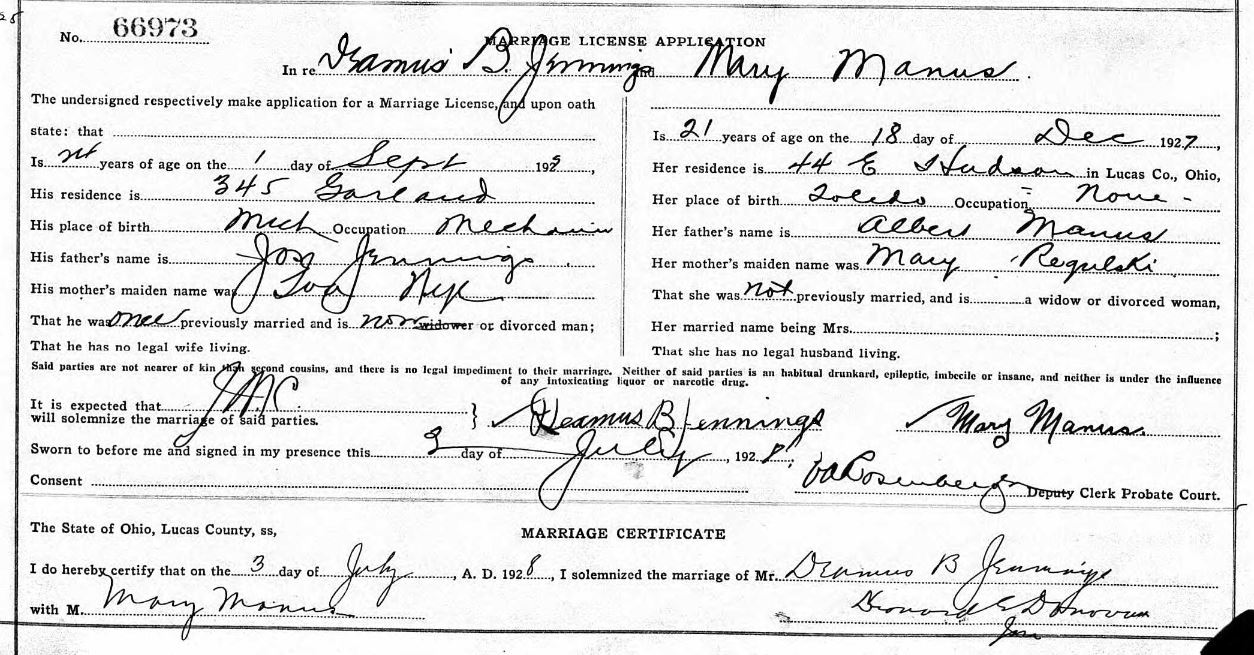 No. 66973
MARRIAGE LICENSE APPLICATION
In re Deamus B. Jennings and Mary Manus.
The undersigned respectively make application for a Marriage License, and upon oath
state: that
Is years of age on the 1 day of Sept 192
His residence is 345 Garland
His place of birth Mich Occupation Mechanic
His father's name is Jos Jennings
His mother's maiden name was Nye
That he was once previously married and is now widower or divorced man;
That he has no legal wife living.
Is 21 years of age on the 18 day of Dec 1927,
Her residence is 44 E Hudson in Lucas Co., Ohio,
Her place of birth Toledo Occupation None -
Her father's name is Albert Manus
Her mother's maiden name was Mary Regulski
That she was not previously married, and is a widow or divorced woman,
Her married name being Mrs. ;
That she has no legal husband living.
Said parties are not nearer of kin than second cousins, and there is no legal impediment to their marriage. Neither of said parties is an habitual drunkard, epileptic, imbecile or insane, and neither is under the influence
of any intoxicating liquor or narcotic drug.
It is expected that
will solemnize the marriage of said parties.
Deamus B Jennings Mary Manus.
Sworn to before me and signed in my presence this 3 day of July, 1928;
Consent
Rosenberg Deputy Clerk Probate Court.
The State of Ohio, Lucas County, ss,
MARRIAGE CERTIFICATE
I do hereby certify that on the 3 day of July, A. D. 1928, I solemnized the marriage of Mr. Deamus B Jennings
with M. Mary Manus
Donovan